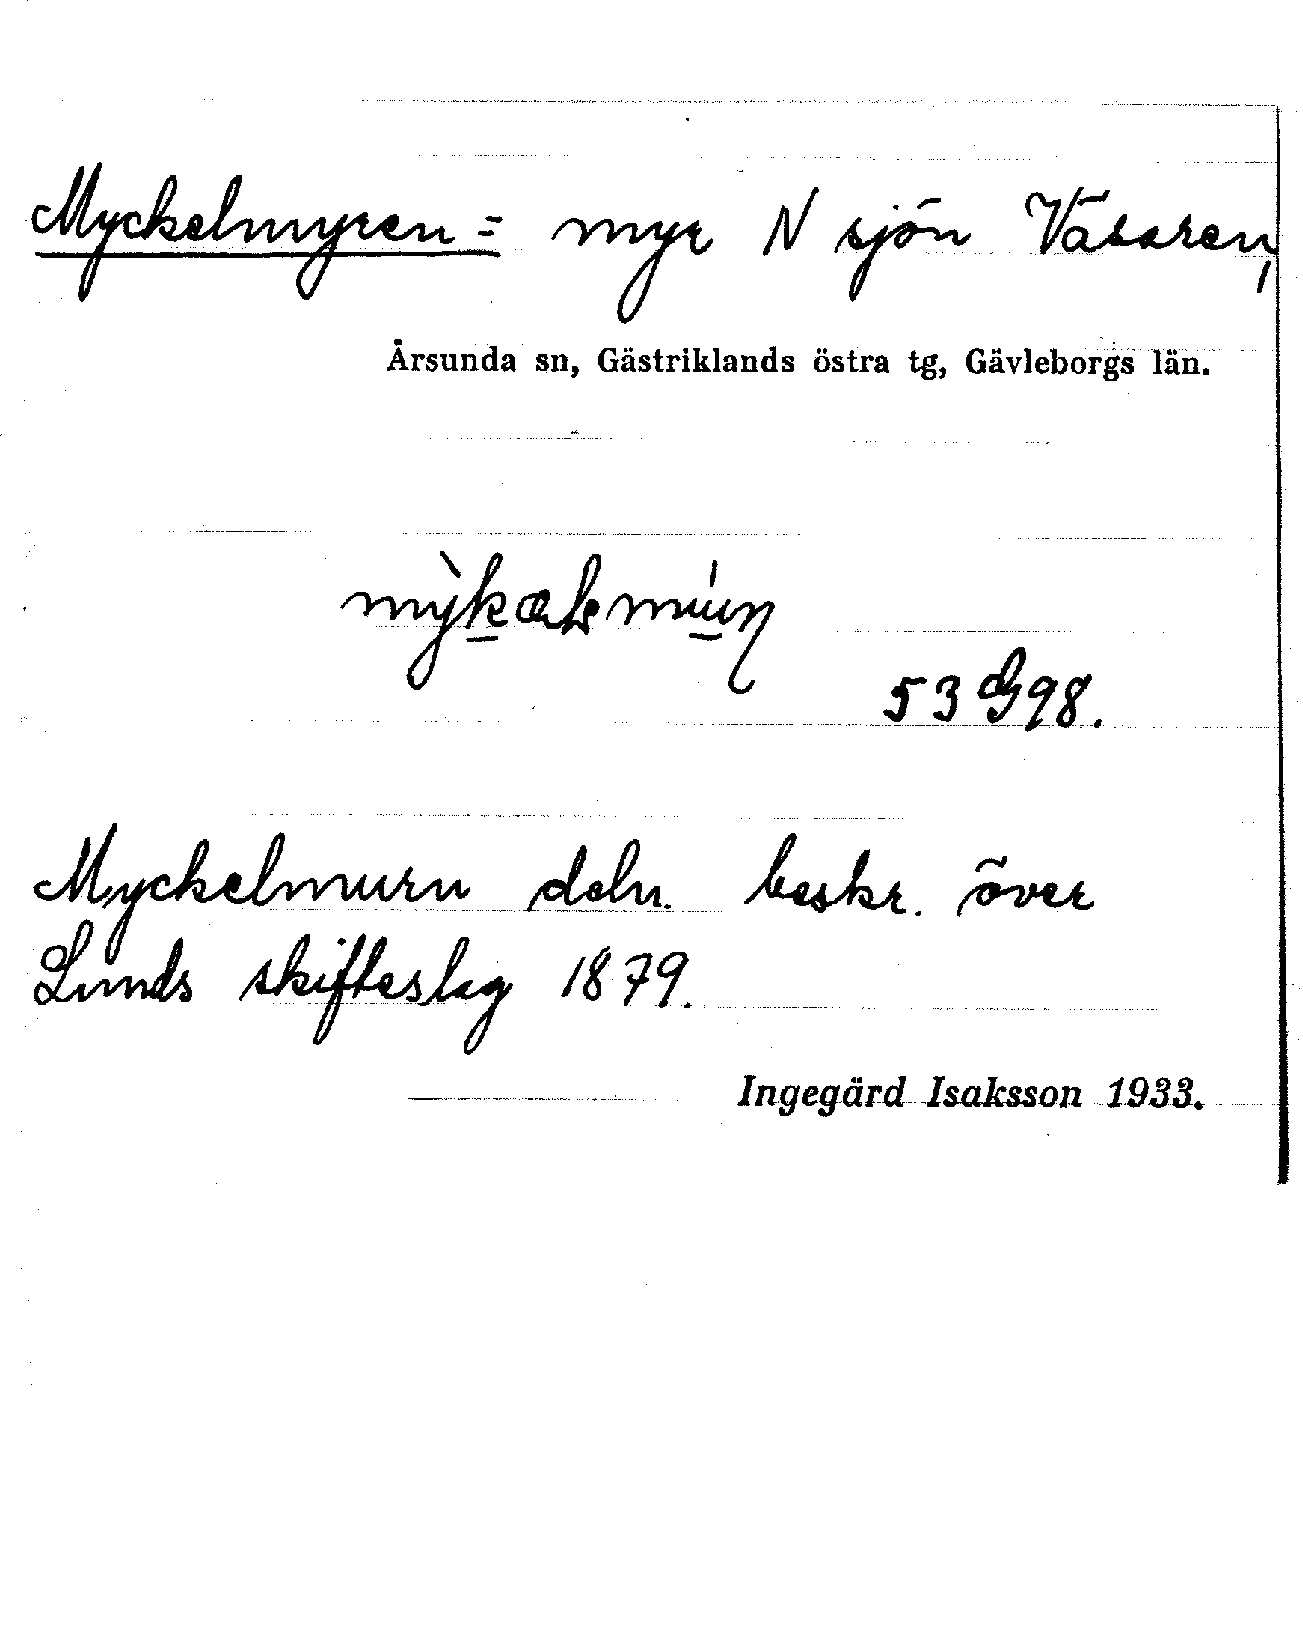 Myckelmyren = myr N sjön Väsaren,
Årsunda sn, Gästriklands östra tg, Gävleborgs län.
53 G 98.
Myckelmurn deln. beskr. över
Lunds skifteslag 1879.
Ingegärd Isaksson 1933.